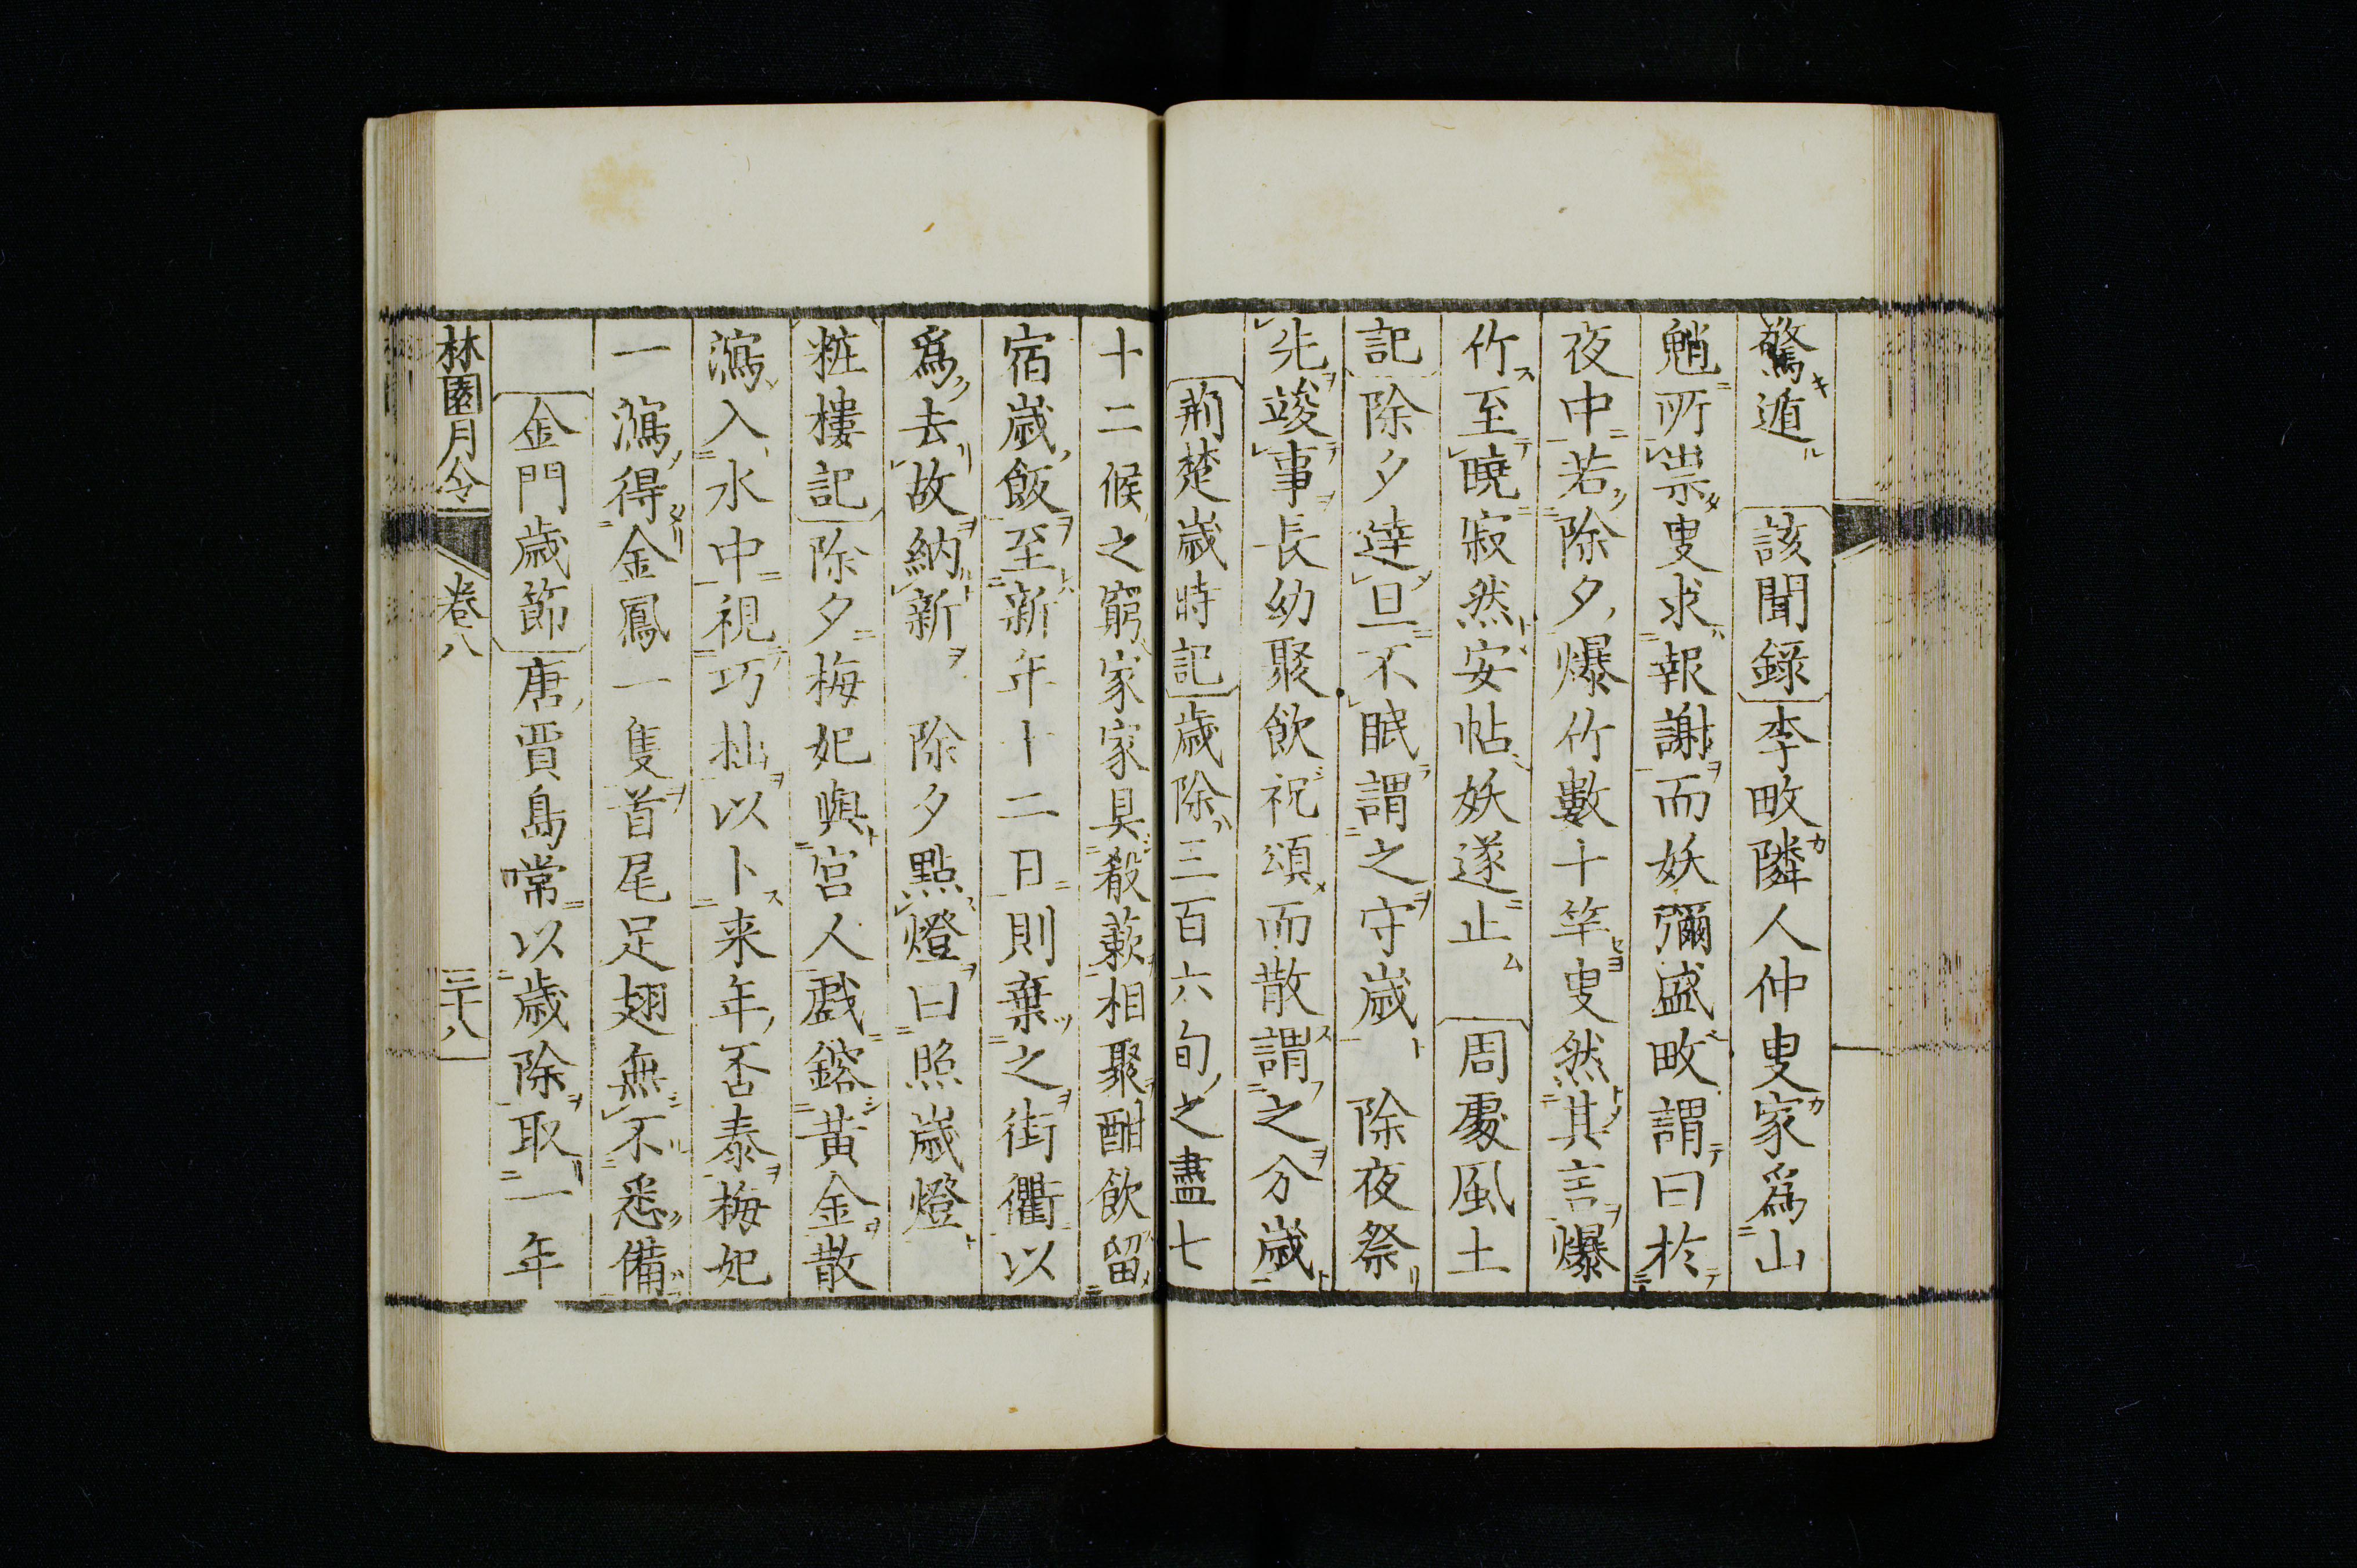 驚遁 該聞錄 李畋隣人仲叟家爲山
魈所祟叟求報謝而妖彌盛畋謂曰於
夜中若除夕爆竹數十竿叟然其言爆
竹至曉寂然安帖妖遂止 周處風土
記 除夕達旦不眠謂之守歲 除夜祭
先竣事長幼聚飲祝頌而散謂之分歲
荊楚歲時記 歲除三百六旬之盡七
十二候之窮家家具殽蔌相聚酣飲留
宿歲飯至新年十二日則棄之街衢以
爲去故納新 除夕點燈曰照歲燈
粧樓記 除夕梅妃與宮人戯鎔黃金散
瀉入水中視巧拙以卜来年否泰梅妃
一瀉得金鳳一隻首尾足翅無不悉備
金門歲節 唐賈島嘗以歲除取一年
林園月令 卷八 三十八